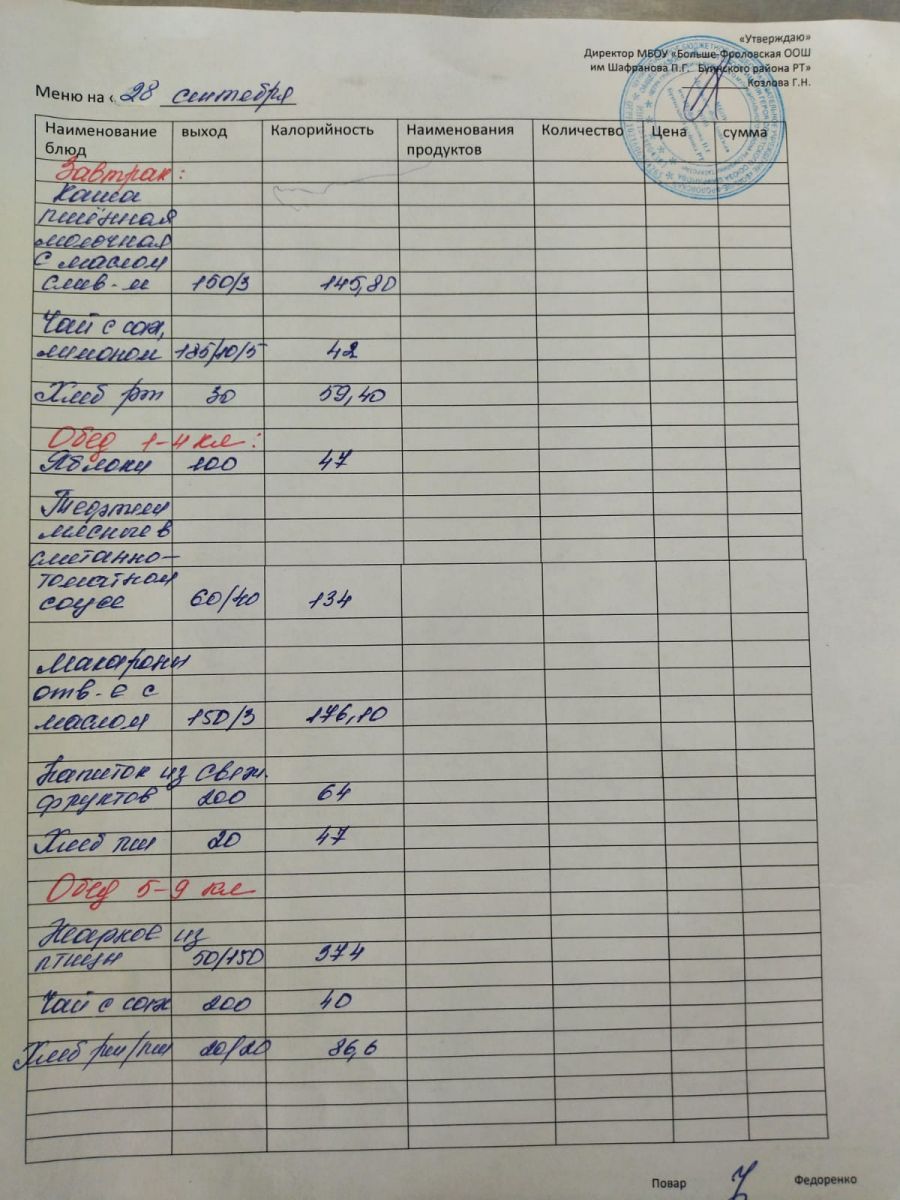 «Утверждаю»
Директор МБОУ «Больше-Фроловская ООШ
им Шафранова П.Г. Буинского района РТ»
Козлова Г.Н.
Меню на « 28 сентября
Наименование блюд выход Калорийность Наименования продуктов Количество Цена сумма
Завтрак:
Каша
пшённая
молочная
с маслом
слив-м 150/3 145,80
Чай с сах,
лимоном 185/10/5 42
Хлеб рж 30 59,40
Обед 1-4 кл:
Яблоки 100 47
Тефтели
мясные в
сметанно-
томатном
соусе 60/40 134
Макароны
отв-е с
маслом 150/3 176,10
Напиток из свеж.
фруктов 200 64
Хлеб пш 20 47
Обед 5-9 кл
Жаркое из
птицы 50/150 374
Чай с сах 200 40
Хлеб рж/пш 20/20 86,6
Повар Федоренко